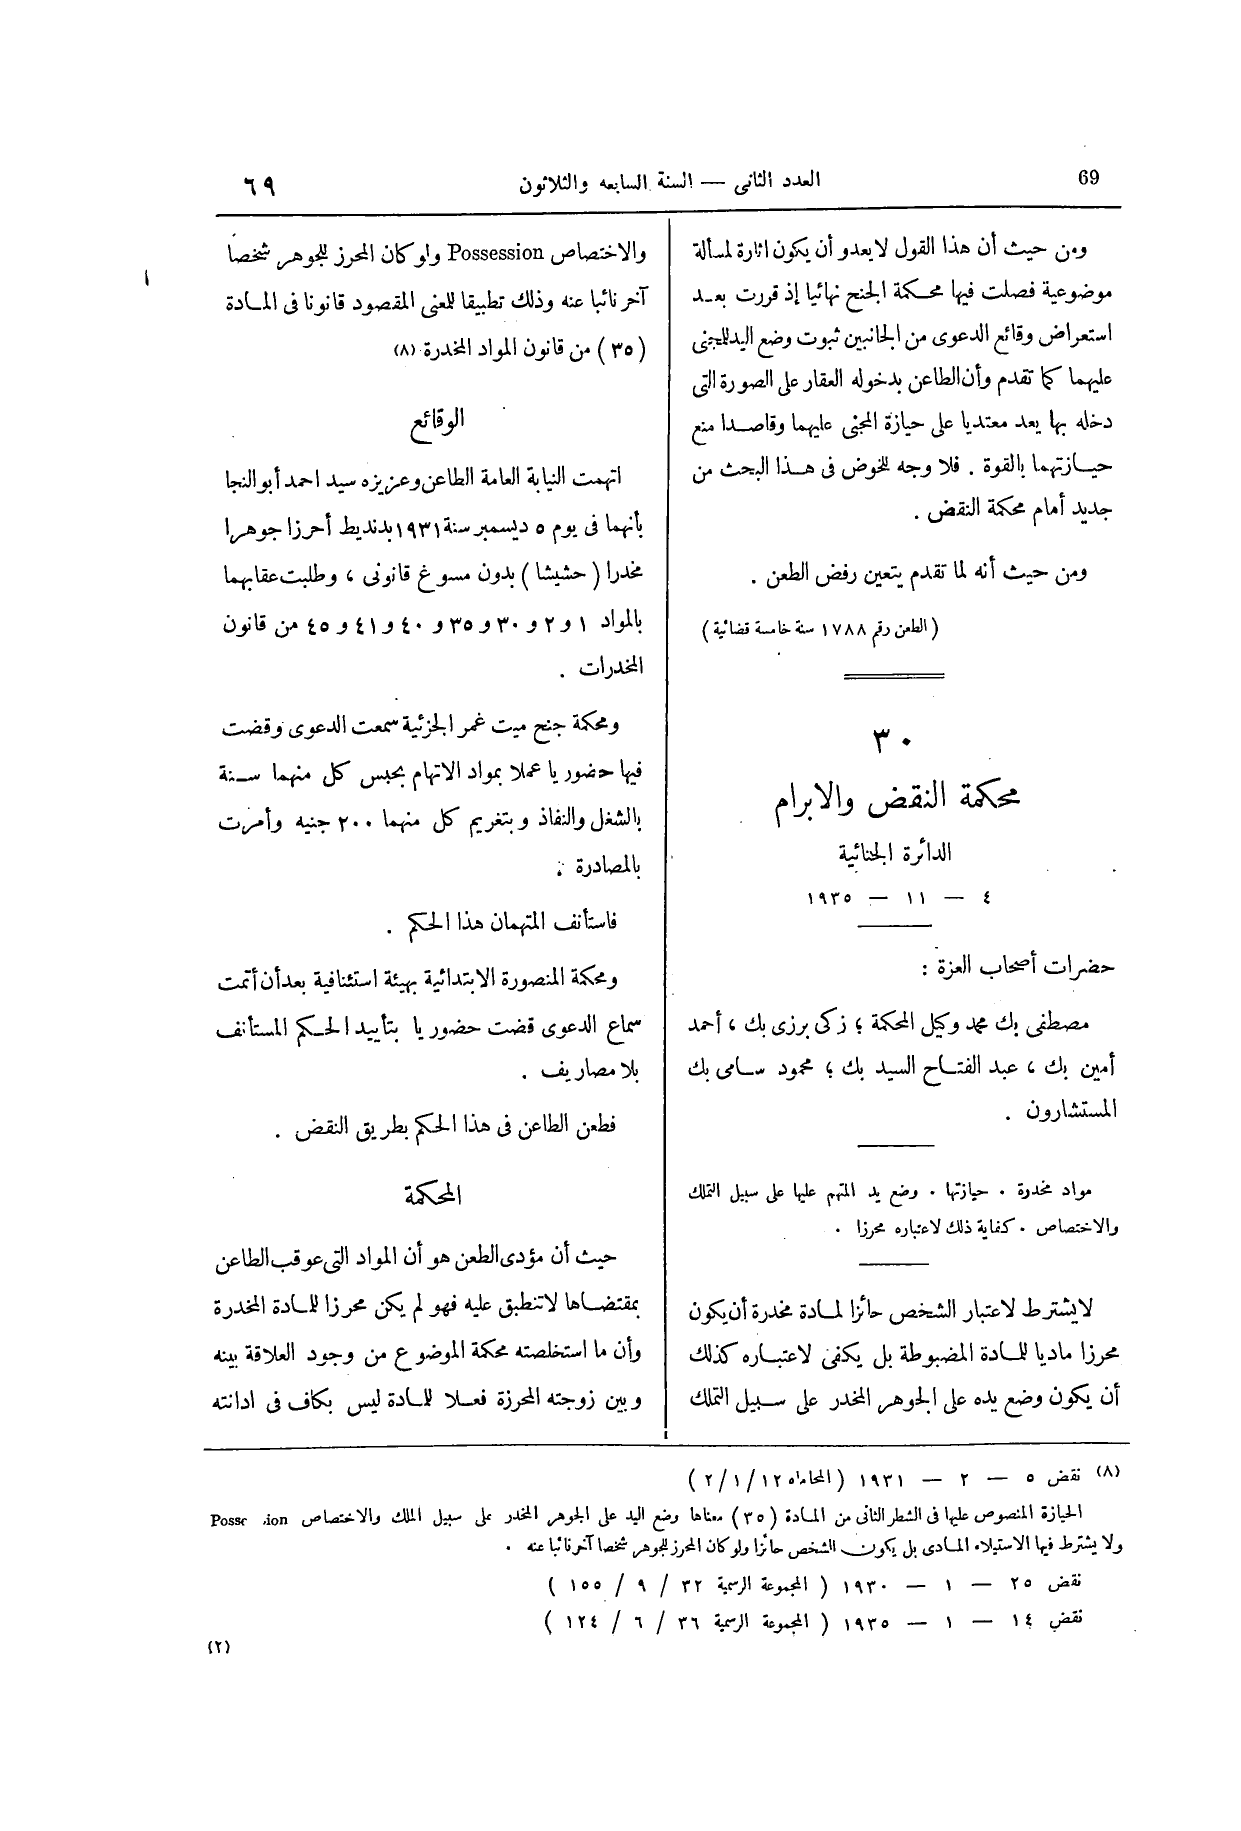 69
العدد الثانى — السنة السابعه والثلاثون
٦٩
ومن حيث أن هذا القول لايعدو أن يكون اثارة لمسألة
موضوعية فصلت فيها محكمة الجنح نهائيا إذ قررت بعد
استعراض وقائع الدعوى من الجانبين ثبوت وضع اليد للمجنى
عليهما كما تقدم وأن الطاعن بدخوله العقار على الصورة التى
دخله بها يعد معتديا على حيازة المجنى عليهما وقاصدا منع
حيازتهما بالقوة . فلا وجه للخوض فى هذا البحث من
جديد أمام محكمة النقض .
ومن حيث أنه لما تقدم يتعين رفض الطعن .
( الطعن رقم ١٧٨٨ سنة خامسة قضائية )
٣٠
محكمة النقض والابرام
الدائرة الجنائية
٤ — ١١ — ١٩٣٥
حضرات أصحاب العزة :
مصطفى بك محمد وكيل المحكمة ؛ زكى برزى بك ، أحمد
أمين بك ، عبد الفتاح السيد بك ؛ محمود سامى بك
المستشارون .
مواد مخدرة . حيازتها . وضع يد المتهم عليها على سبيل التملك
والاختصاص . كفاية ذلك لاعتباره محرزا .
لايشترط لاعتبار الشخص حائزا لمادة مخدرة أن يكون
محرزا ماديا للمادة المضبوطة بل يكفى لاعتباره كذلك
أن يكون وضع يده على الجوهر المخدر على سبيل التملك
والاختصاص Possession ولو كان المحرز للجوهر شخصا
آخر نائبا عنه وذلك تطبيقا للمعنى المقصود قانونا فى المادة
( ٣٥ ) من قانون المواد المخدرة (٨)
الوقائع
اتهمت النيابة العامة الطاعن وعزيزه سيد احمد أبو النجا
بأنهما فى يوم ٥ ديسمبر سنة ١٩٣١ بدنديط أحرزا جوهرا
مخدرا ( حشيشا ) بدون مسوغ قانونى ، وطلبت عقابهما
بالمواد ١ و ٢ و ٣٠ و ٣٥ و ٤٠ و ٤١ و ٤٥ من قانون
المخدرات .
ومحكمة جنح ميت غمر الجزئية سمعت الدعوى وقضت
فيها حضوريا عملا بمواد الاتهام بحبس كل منهما سنة
بالشغل والنفاذ وبتغريم كل منهما ٢٠٠ جنيه وأمرت
بالمصادرة .
فاستأنف المتهمان هذا الحكم .
ومحكمة المنصورة الابتدائية بهيئة استئنافية بعد أن أتمت
سماع الدعوى قضت حضوريا بتأييد الحكم المستأنف
بلا مصاريف .
فطعن الطاعن فى هذا الحكم بطريق النقض .
المحكمة
حيث أن مؤدى الطعن هو أن المواد التى عوقب الطاعن
بمقتضاها لاتنطبق عليه فهو لم يكن محرزا للمادة المخدرة
وأن ما استخلصته محكمة الموضوع من وجود العلاقة بينه
وبين زوجته المحرزة فعلا للمادة ليس بكاف فى ادانته
(٨) نقض ٥ — ٢ — ١٩٣١ ( المحاماه ١٢ / ١ / ٢ )
الحيازة المنصوص عليها فى الشطر الثانى من المادة ( ٣٥ ) معناها وضع اليد على الجوهر المخدر على سبيل الملك والاختصاص Possession
ولا يشترط فيها الاستيلاء المادى بل يكون الشخص حائزا ولو كان المحرز للجوهر شخصا آخر نائبا عنه .
نقض ٢٥ — ١ — ١٩٣٠ ( المجموعة الرسمية ٣٢ / ٩ / ١٥٥ )
نقض ١٤ — ١ — ١٩٣٥ ( المجموعة الرسمية ٣٦ / ٦ / ١٢٤ )
(٢)